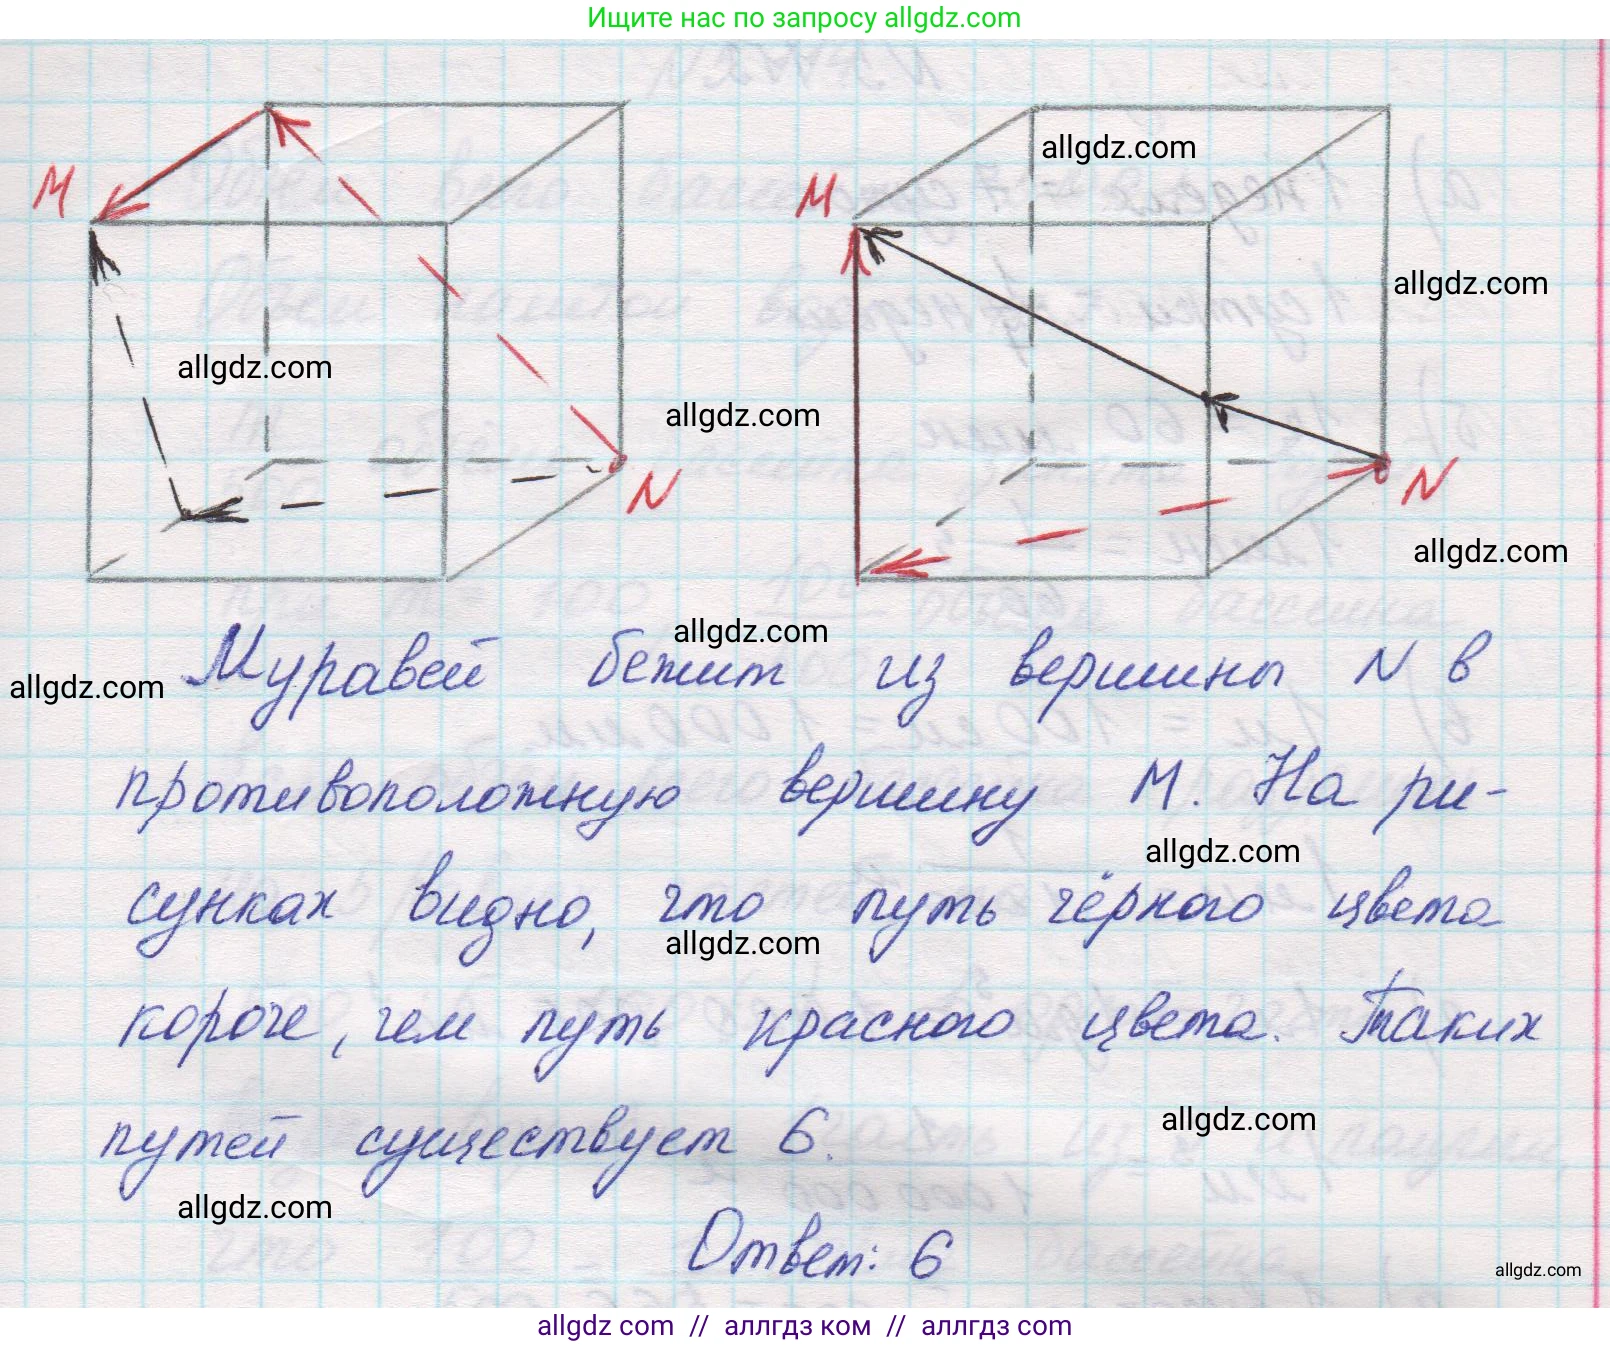 Ищите нас по запросу allgdz.com
allgdz.com
M
M
allgdz.com
allgdz.com
allgdz.com
N
N
allgdz.com
allgdz.com
Муравей бежит из вершины N в
allgdz.com
противоположную вершину M. На ри-
allgdz.com
сунках видно, что путь чёрного цвета
allgdz.com
короче, чем путь красного цвета. Таких
allgdz.com
путей существует 6.
allgdz.com
Ответ: 6
allgdz.com
allgdz com // аллгдз ком // аллгдз com